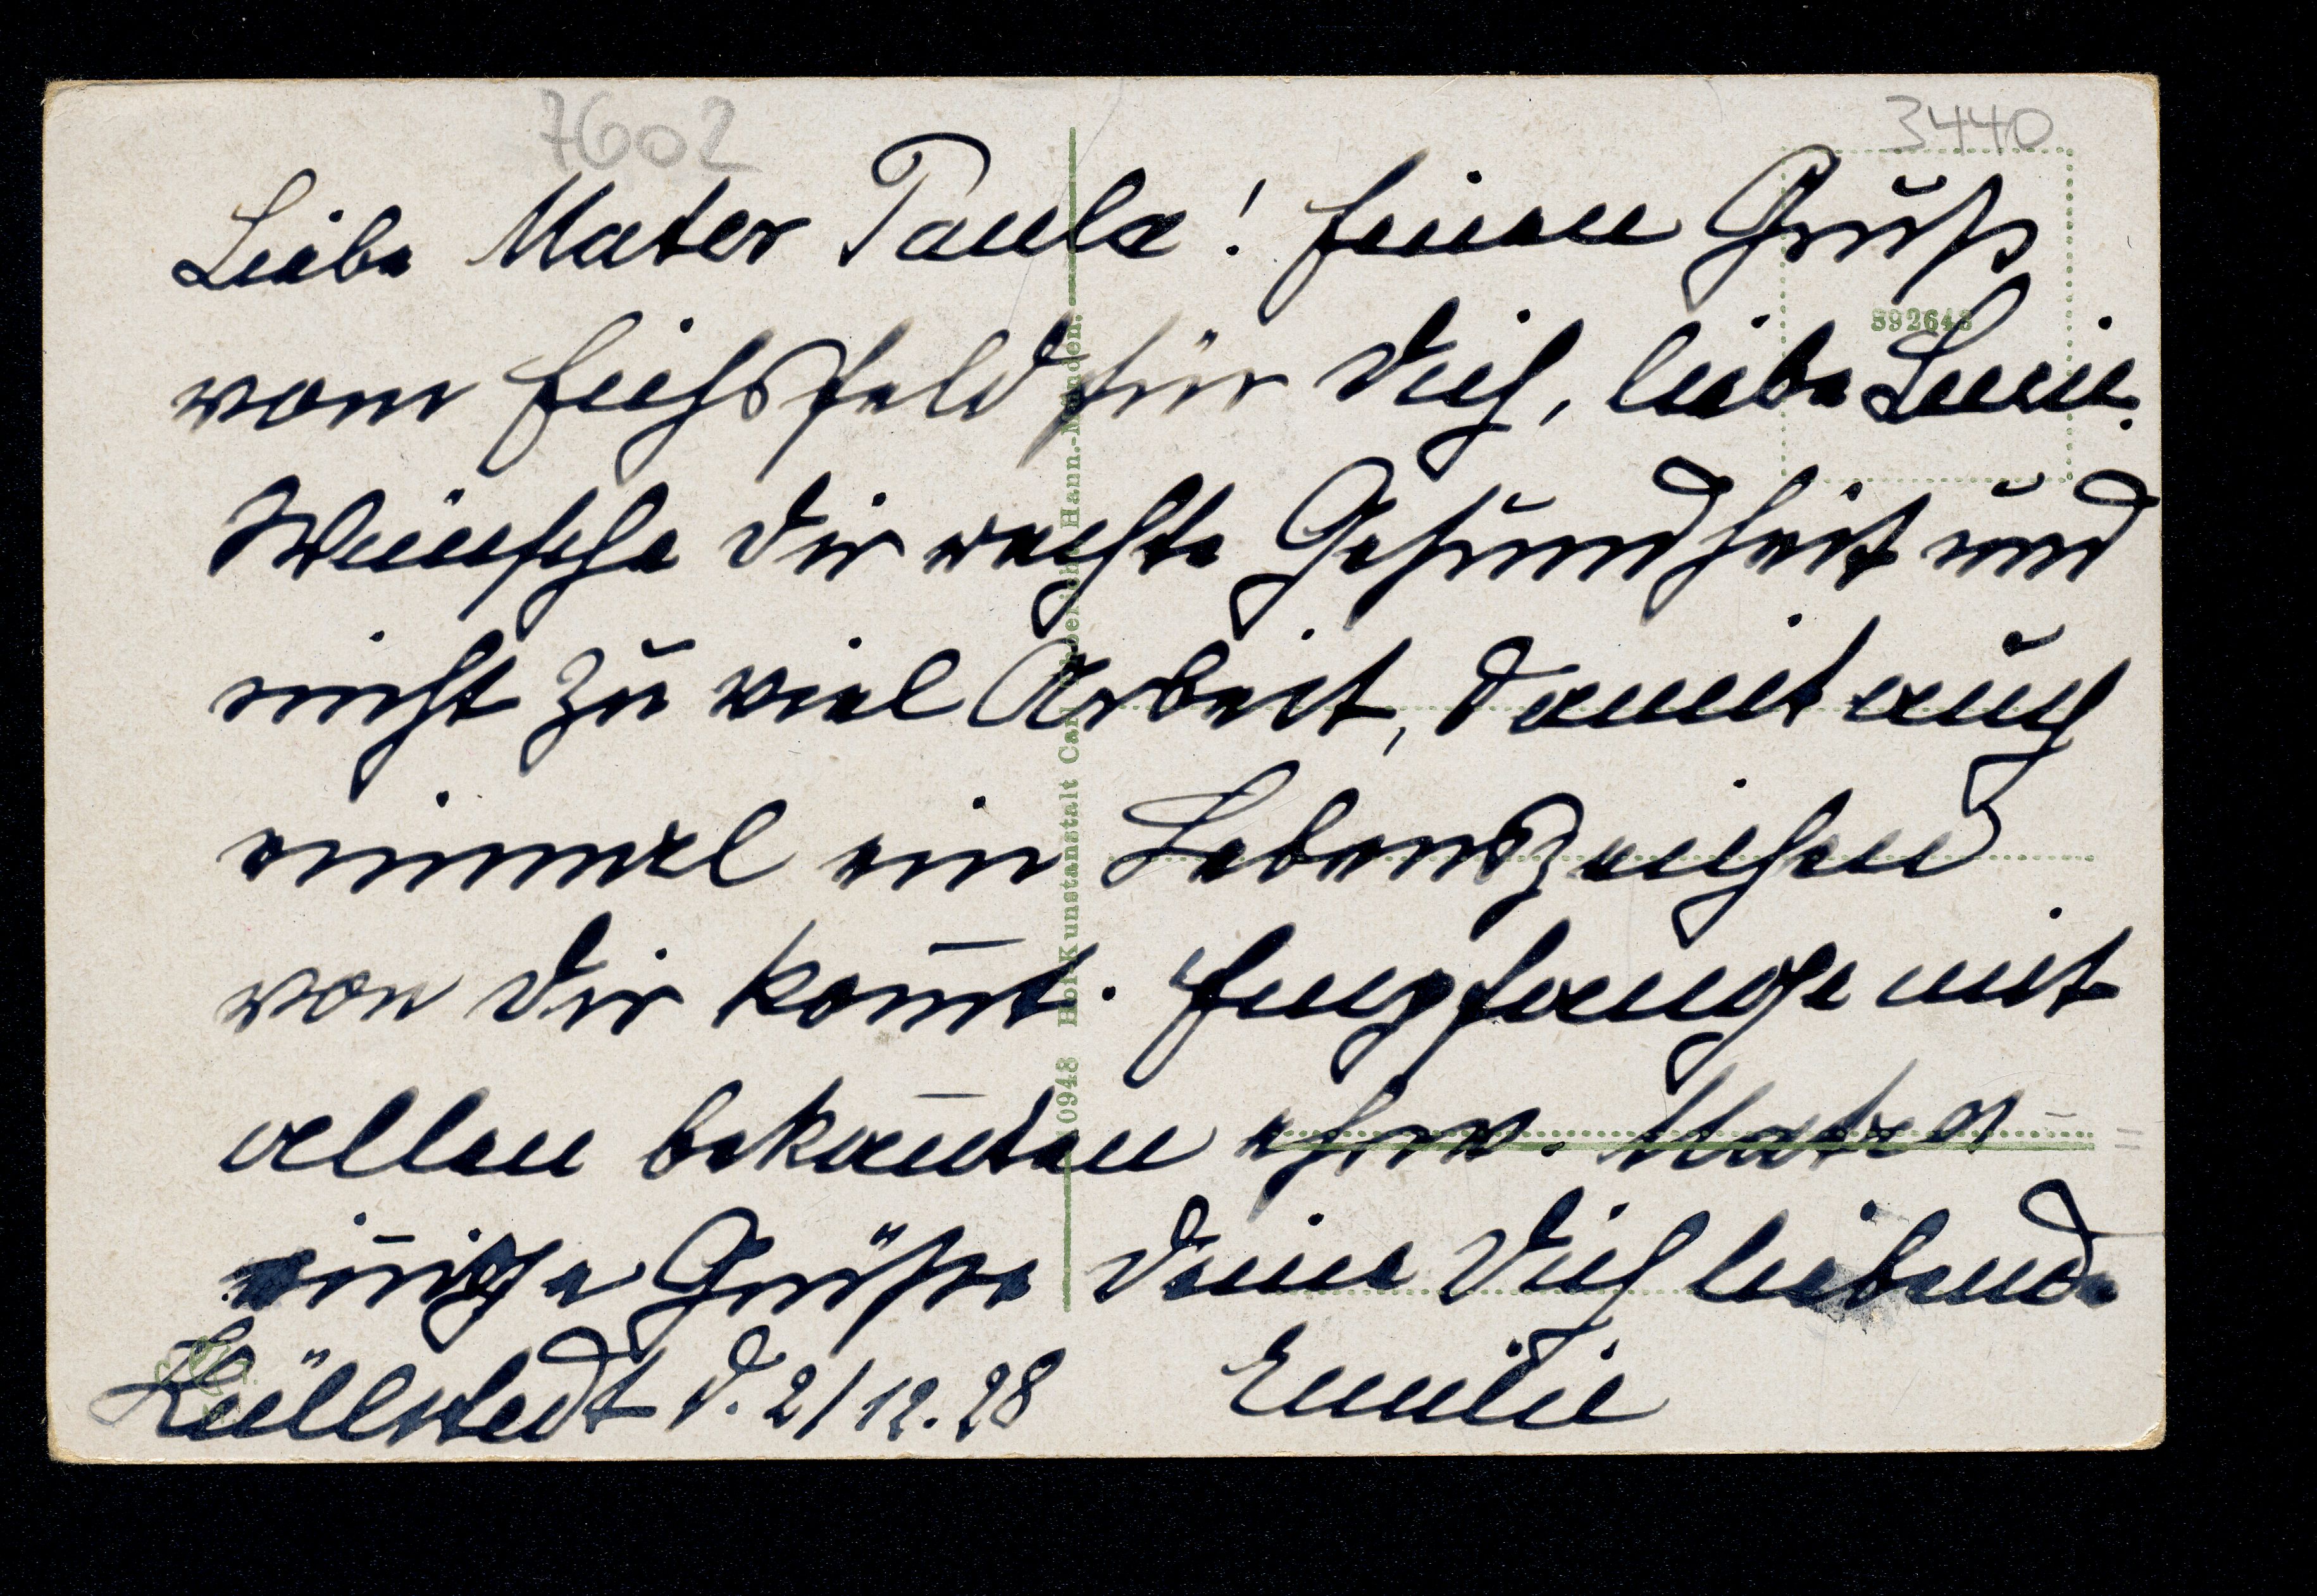 7602
3440
Liebe Mater Paula! Einen Gruß
892643
vom Eichsfeld für Dich, liebe
Wünsche Dir rechte Gesundheit und
nicht zu viel Arbeit, damit auch
einmal ein Lebenszeichen
von Dir kom̄t. Empfange mit
allen bekan̄ten ehrw. Matern
innige Grüße Deine Dich liebende
Küllstedt d. 2/12.28 Emilie
Kunstanstalt Hann.-Münden.